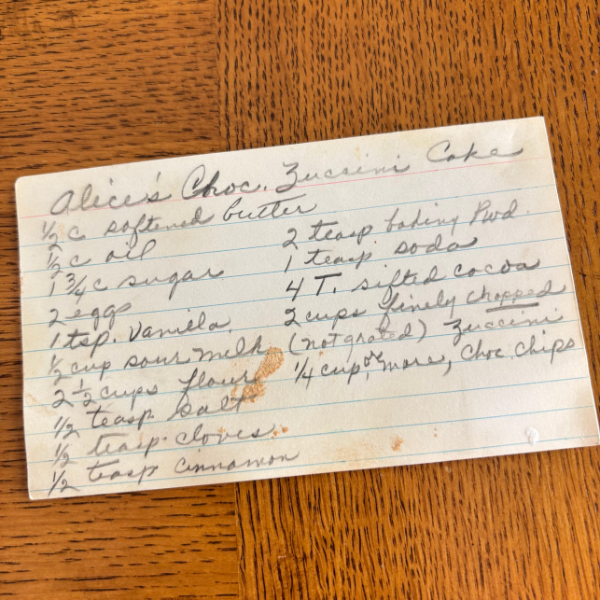 Alice's Choc. Zuccini Cake
½ c softened butter
½ c oil
1 ¾ c sugar
2 eggs
1 tsp. vanilla
½ cup sour milk
2 ½ cups flour
½ teasp salt
½ teasp. cloves
½ teasp cinnamon
2 teasp baking Pwd.
1 teasp. soda
4 T. sifted cocoa
2 cups finely chopped
(not grated) Zuccini
¼ cup or more, choc chips